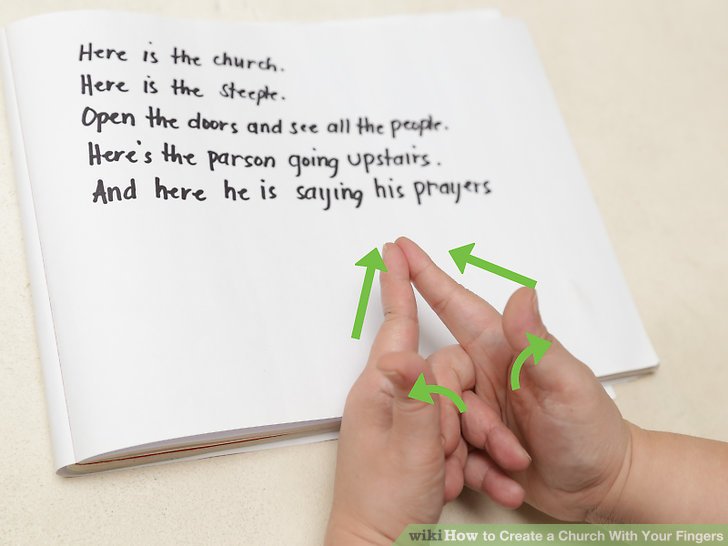 Here is the church.
Here is the steeple.
Open the doors and see all the people.
Here's the parson going upstairs.
And here he is saying his prayers
wikiHow to Create a Church With Your Fingers